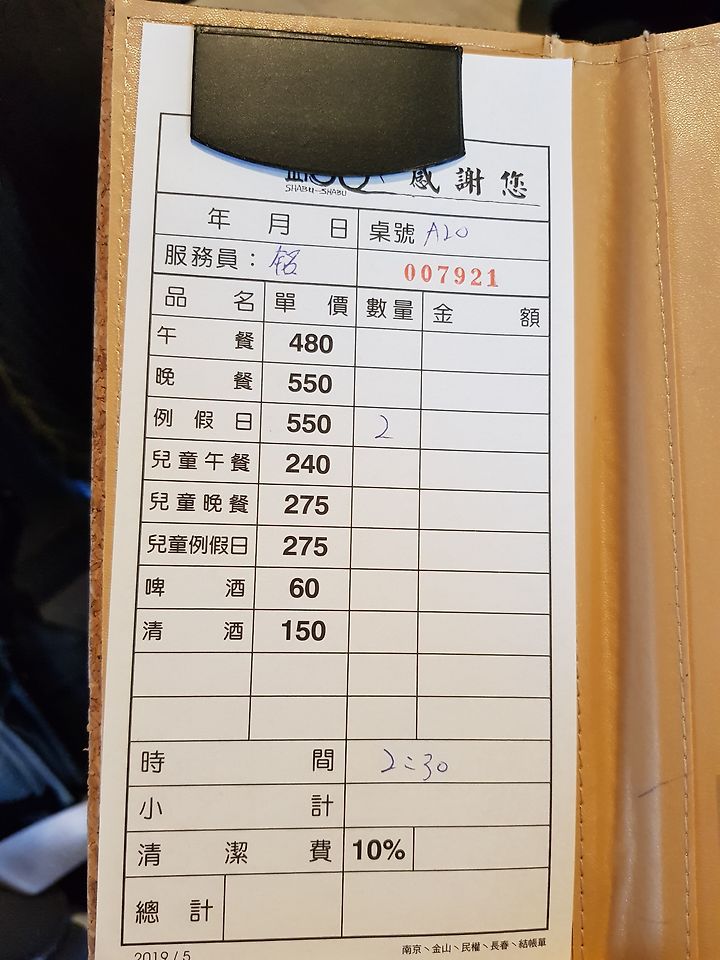 SHABU-SHABU 感謝您
年 月 日 桌號 A20
服務員： 007921
品名 單價 數量 金額
午餐 480
晚餐 550
例假日 550 2
兒童午餐 240
兒童晚餐 275
兒童例假日 275
啤酒 60
清酒 150
時間 2:30
小計
清潔費 10%
總計
2019/5 南京、金山、民權、長春、結帳單